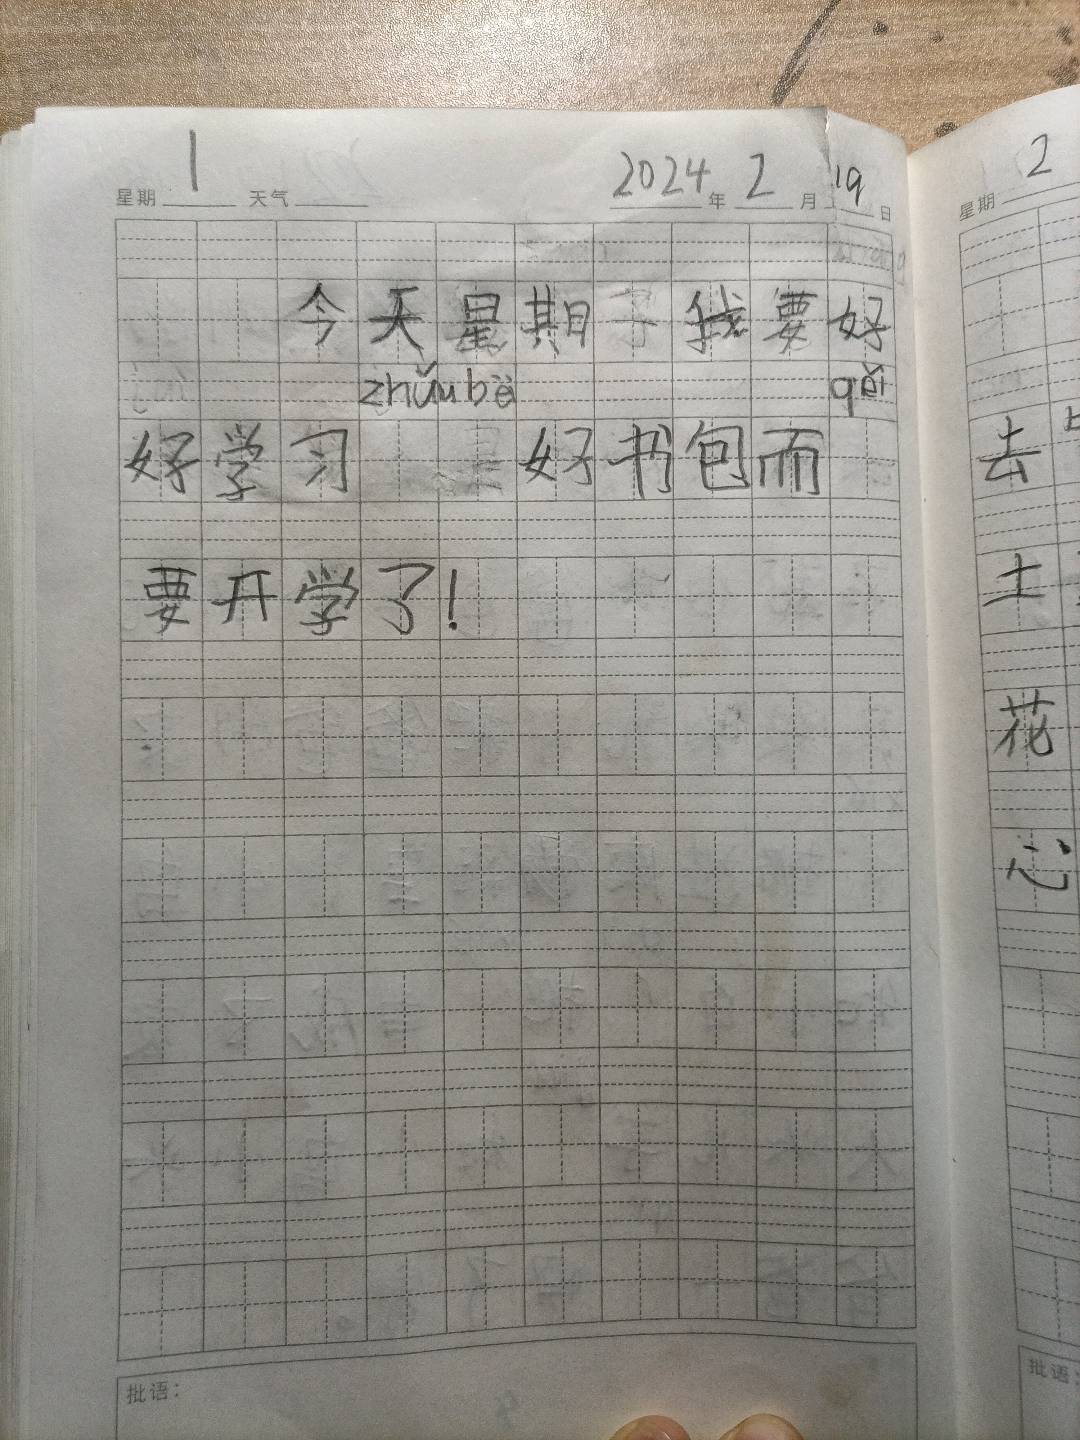 星期 1 天气 2024 年 2 月 19 日
今天星期 我要好
zhǔnbèi qěi
好学习 好书包而
要开学了!
批语:
星期 2
去
土
花
心
批语: